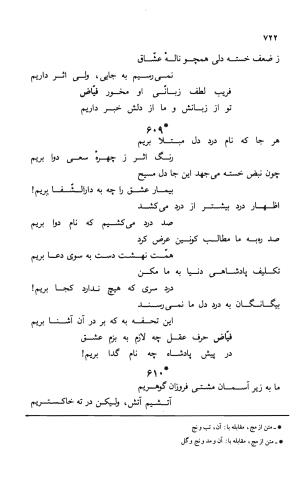 ۷۲۲
ز ضعف خسته دلی همچو نالهٔ عشّاق
نمی‌رسیم به جایی، ولی اثر داریم
فریب لطف زبانی او مخور فیّاض
تو از زبانش و ما از دلش خبر داریم
*۶۰۹
هر جا که نام درد دل مبتلا بریم
رنگ اثر ز چهرهٔ سعی دوا بریم
چون نبض خسته می‌جهد این جا دل مسیح
بیمار عشق را چه به دارالشّفا بریم!
اظهار درد بیشتر از درد می‌کشد
صد درد می‌کشیم که نام دوا بریم
صد ره‌به ما مطالب کونین عرض کرد
همّت نهشت دست به سوی دعا بریم
تکلیف پادشاهی دنیا به ما مکن
درد سری که هیچ ندارد کجا بریم!
بیگانگان به درد دل ما نمی‌رسند
این تحفه به که بر در آن آشنا بریم
فیّاض حرف عقل چه لازم به بزم عشق
در پیش پادشاه چه نام گدا بریم!
*۶۱۰
ما به زیر آسمان مشتی فروزان گوهریم
آتشیم آتش، ولیکن در ته خاکستریم
* ـ متن از مج، مقابله با: آن، تب و نج
* ـ متن از مج، مقابله با: آن و مد و نج وگل